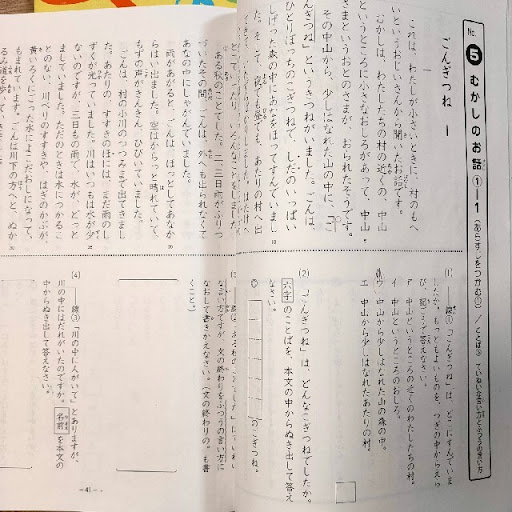 No.
5
むかしのお話①-1
(あらすじをつかむ①/ことば③ ていねいな言い方とふつうの言い方)
ごんぎつね 一
これは、わたしが小さいときに、村のもへ
いというおじいさんから聞いたお話です。
むかしは、わたしたちの村の近くの、中山
というところに小さなおしろがあって、中山
さまというおとのさまが、おられたそうです。
その中山から、少しはなれた山の中に、「ご
んぎつね」というきつねがいました。ごんは、
ひとりぼっちの子ぎつねで、しだのいっぱい
しげった森の中にあなをほってすんでいまし
た。そして、夜でも昼でも、あたりの村へ出
ある秋のことでした。二、三日雨がふりつ
づいたその間、ごんは、外へも出られなくて
あなの中にしゃがんでいました。
雨があがると、ごんは、ほっとしてあなか
らはい出ました。空はからっと晴れていて、
もずの声がきんきん、ひびいていました。
ごんは、村の小川のつつみまで出てきまし
た。あたりの、すすきのほには、まだ雨のし
ずくが光っていました。川はいつもは水が少
ないのですが、三日もの雨で、水が、どっと
ましていました。ただのときは水につかるこ
とのない、川べりのすすきや、はぎのかぶが、
黄いろくにごった水によこだおしになって、
もまれています。ごんは川下の方へと、ぬか
るみ道を歩
(1)
線①「ごんぎつね」は、どこにすんでいま
したか。もっともよいものを、つぎの中からえら
び、記ごうで答えなさい。
ア 中山というところの近くのわたしたちの村。
イ 中山というところのおしろ。
ウ 中山から少しはなれた山の森の中。
エ 中山から少しはなれたあたりの村。
(2)
「ごんぎつね」は、どんなきつねでしたか。
六字のことばを、本文の中からぬき出して答え
なさい。
の子ぎつね。
なおして書きかえなさい。(文の終わりの。も書
くこと)
(4)
線③「川の中に人がいて」とありますが、
川の中にはだれがいたのですか。名前を本文の
中からぬき出して答えなさい。
-41-